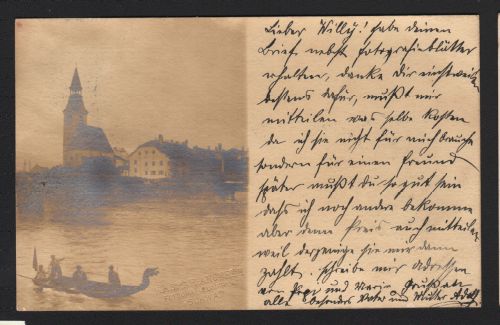 Lieber Willy! habe deinen
Brief nebst Fotografieblätter
erhalten, danke dir einstweilen
bestens dafür, mußt mir
mitteilen was selbe kosten
da ich sie nicht für mich brauche
sondern für einen Freund
später mußt du so gut sein
dass ich noch andere bekomme
aber dann Preis auch mitteilen
weil derjenige sie mir dann
zahlt. schreibe mir Adressen
von Pepi und Maria. Grüsst
alle besonders Vater und Mutter